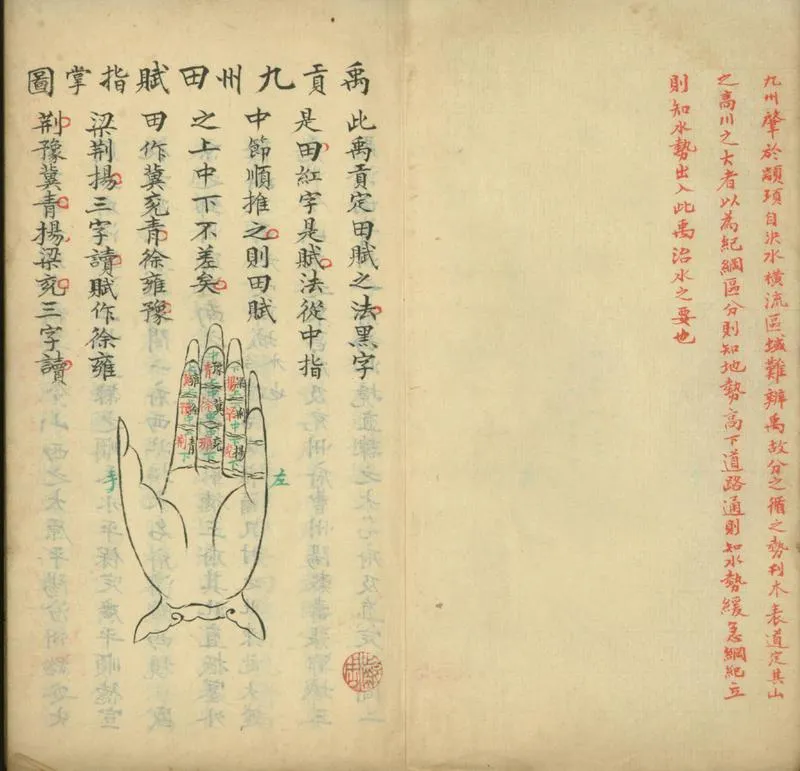 九州肇於顓頊自洪水橫流區域難辨禹故分之循之勢刊木表道定其山
之高川之大者以為紀綱區分則知地勢高下道路通則知水勢緩急綱紀立
則知水勢出入此禹治水之要也
禹貢九州田賦指掌圖
此禹貢定田賦之法黑字
是田紅字是賦法從中指
中節順推之則田賦
之上中下不差矣
田作冀兗青徐雍豫
梁荆揚三字讀賦作徐雍
荆豫冀青揚梁兗三字讀
左
手